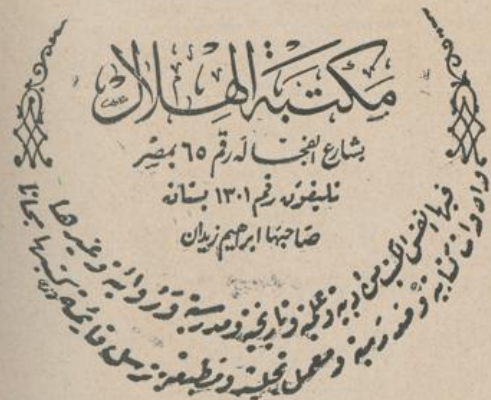 مكتبة الهلال
بشارع الفجالة رقم ٦٥ بمصر
تليفون رقم ١٣٠١ بستان
صاحبها ابراهيم زيدان
فيها انفس الكتب من دبية وعلمية وتاريخية ومدرسية وروائية وغيرها
وادوات كتابية ومدرسية ومعمل تجليد ومطبعة ترسل قائمة كتبها مجانا